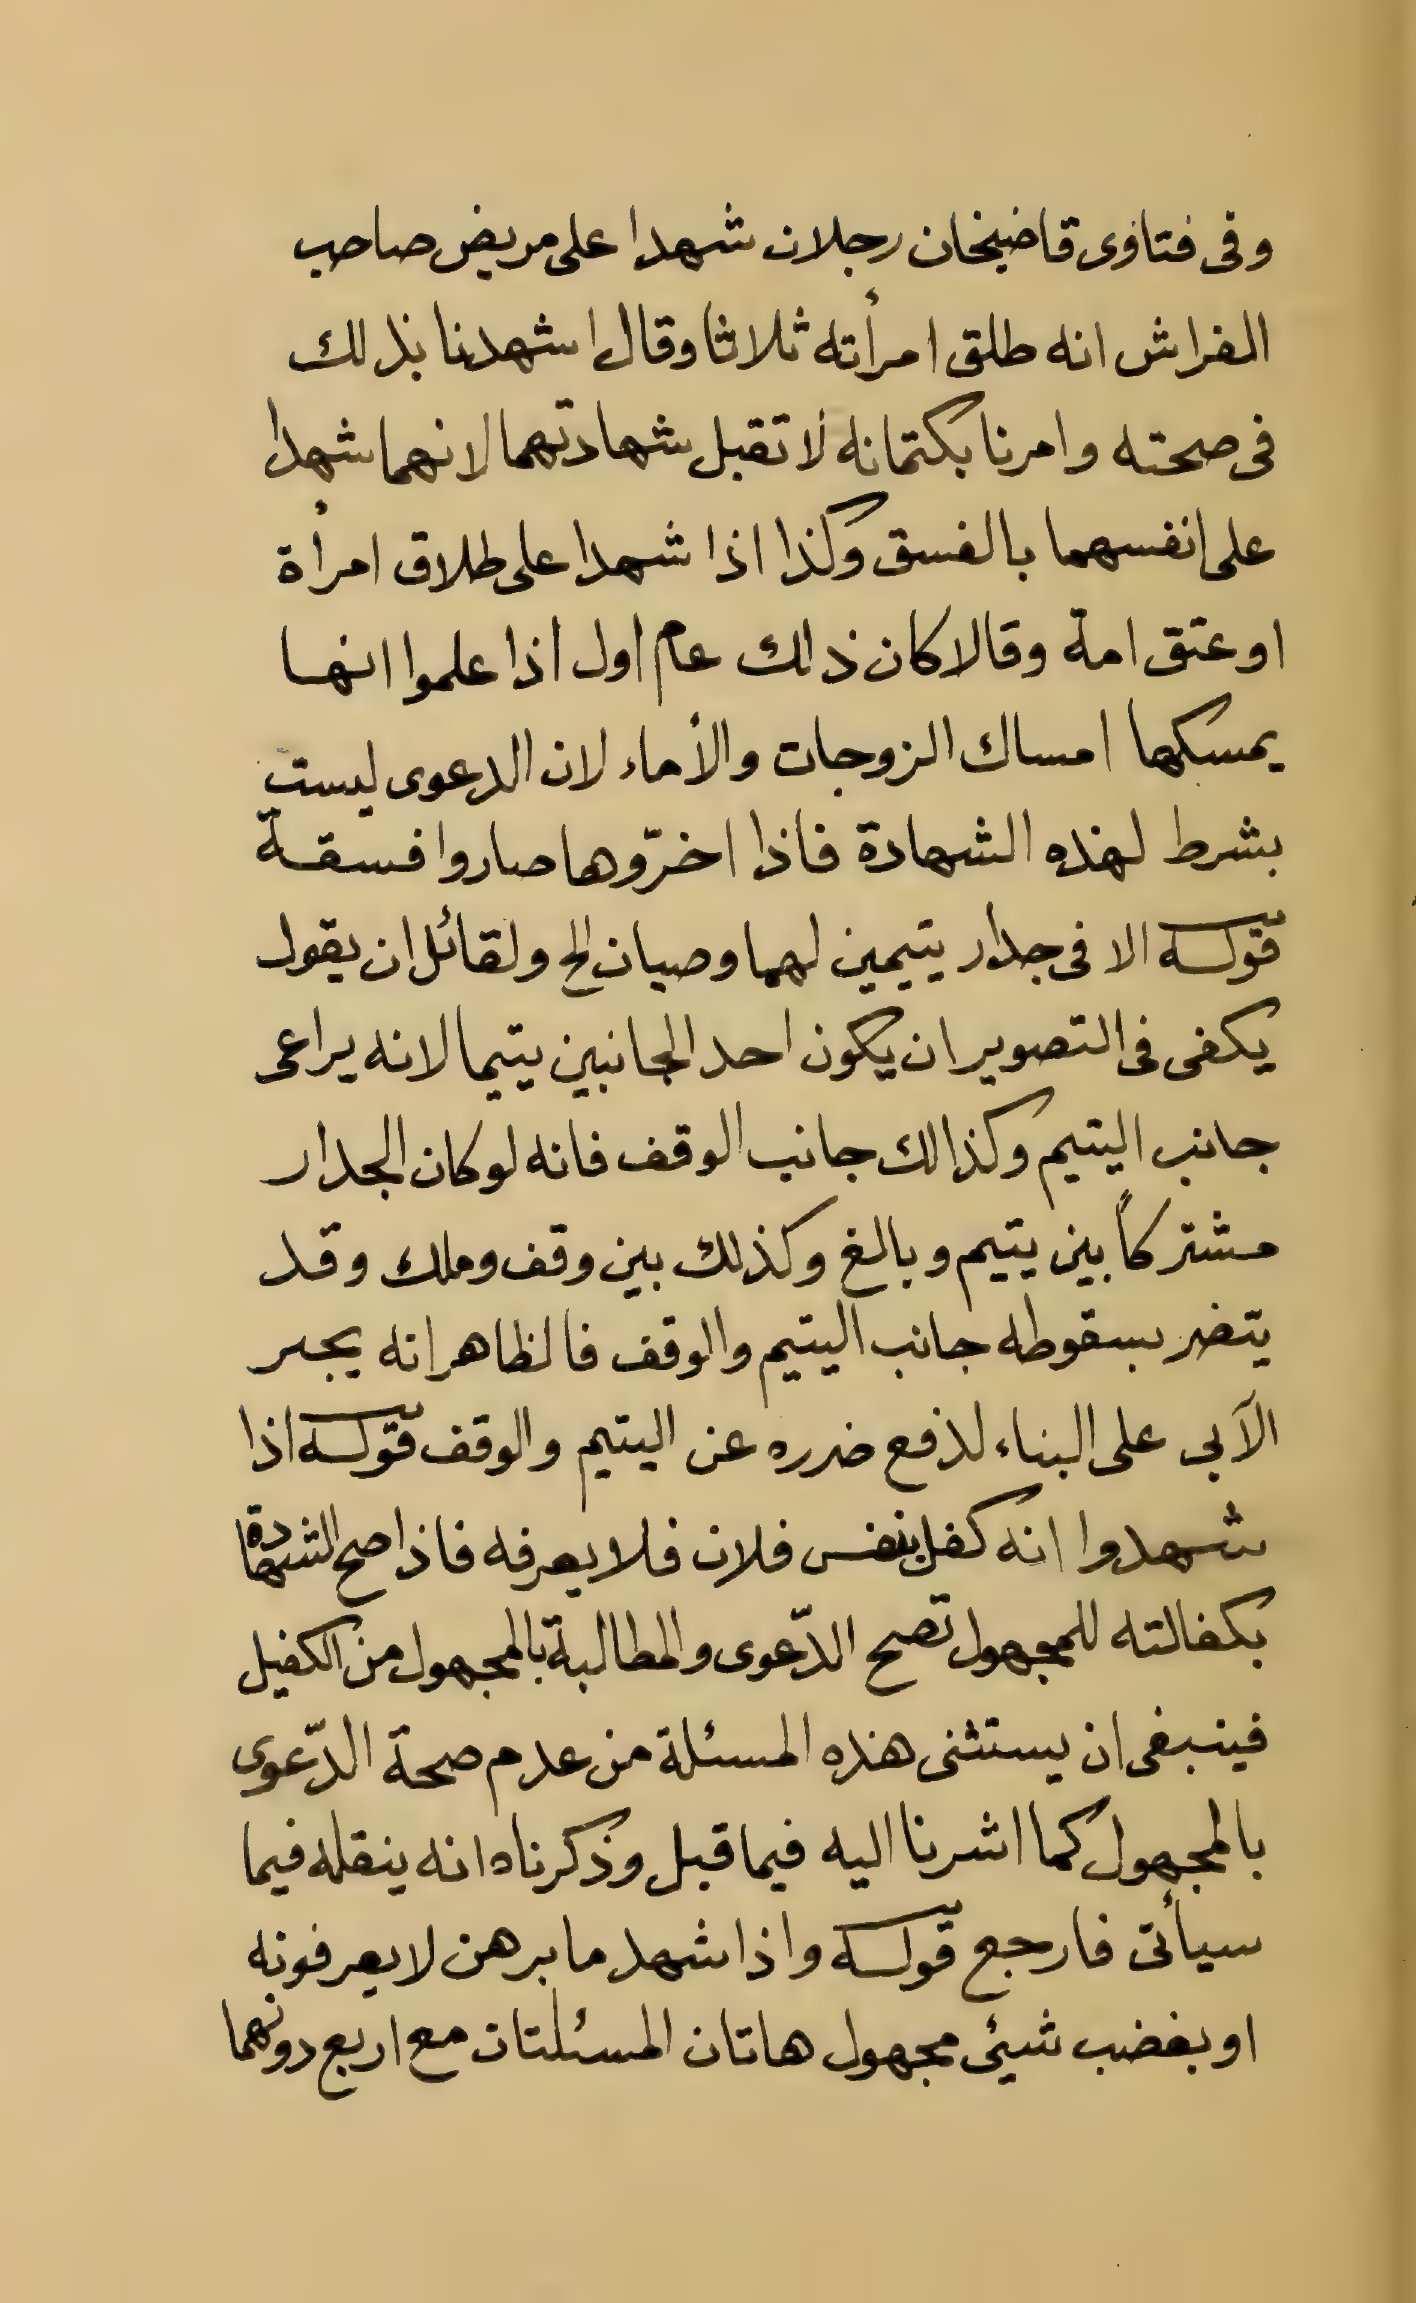 وفى فتاوى قاضيخان رجلان شهدا على مريض صاحب
الفراش انه طلق امرأته ثلاثا وقالا شهدنا بذلك
فى صحته وامرنا بكتمانه لا تقبل شهادتهما لانهما شهدا
على انفسهما بالفسق وكذا اذا شهدا على طلاق امرأة
او عتق امة وقالا كان ذلك عام اول اذا علموا انهـا
يمسكها امساك الزوجات والأماء لان الدعوى ليست
بشرط لهذه الشهادة فاذا اخرّوها صاروا فسقـة
قوله الا فى جدار يتيمين لهما وصيان الخ ولقائل ان يقول
يكفى فى التصوير ان يكون احد الجانبين يتيما لانه يراعى
جانب اليتيم وكذالك جانب الوقف فانه لو كان الجدار
مشتركاً بين يتيم وبالغ وكذلك بين وقف وملك وقد
يتضر بسقوطه جانب اليتيم والوقف فالظاهر انه يجبر
الآبى على البناء لدفع ضرره عن اليتيم والوقف قوله اذا
شهدوا انه كفل بنفس فلان فلا يعرفه فاذا صح الشهادة
بكفالته للمجهول تصح الدّعوى والمطالبة بالمجهول من الكفيل
فينبغى ان يستثنى هذه المسئلة من عدم صحة الدّعوى
بالمجهول كما اشرنا اليه فيما قبل وذكرناه انه ينقله فيما
سيأتى فارجع قوله واذا شهد ما برهن لا يعرفونه
او بغضب شيئ مجهول هاتان المسئلتان مع اربع دونهما